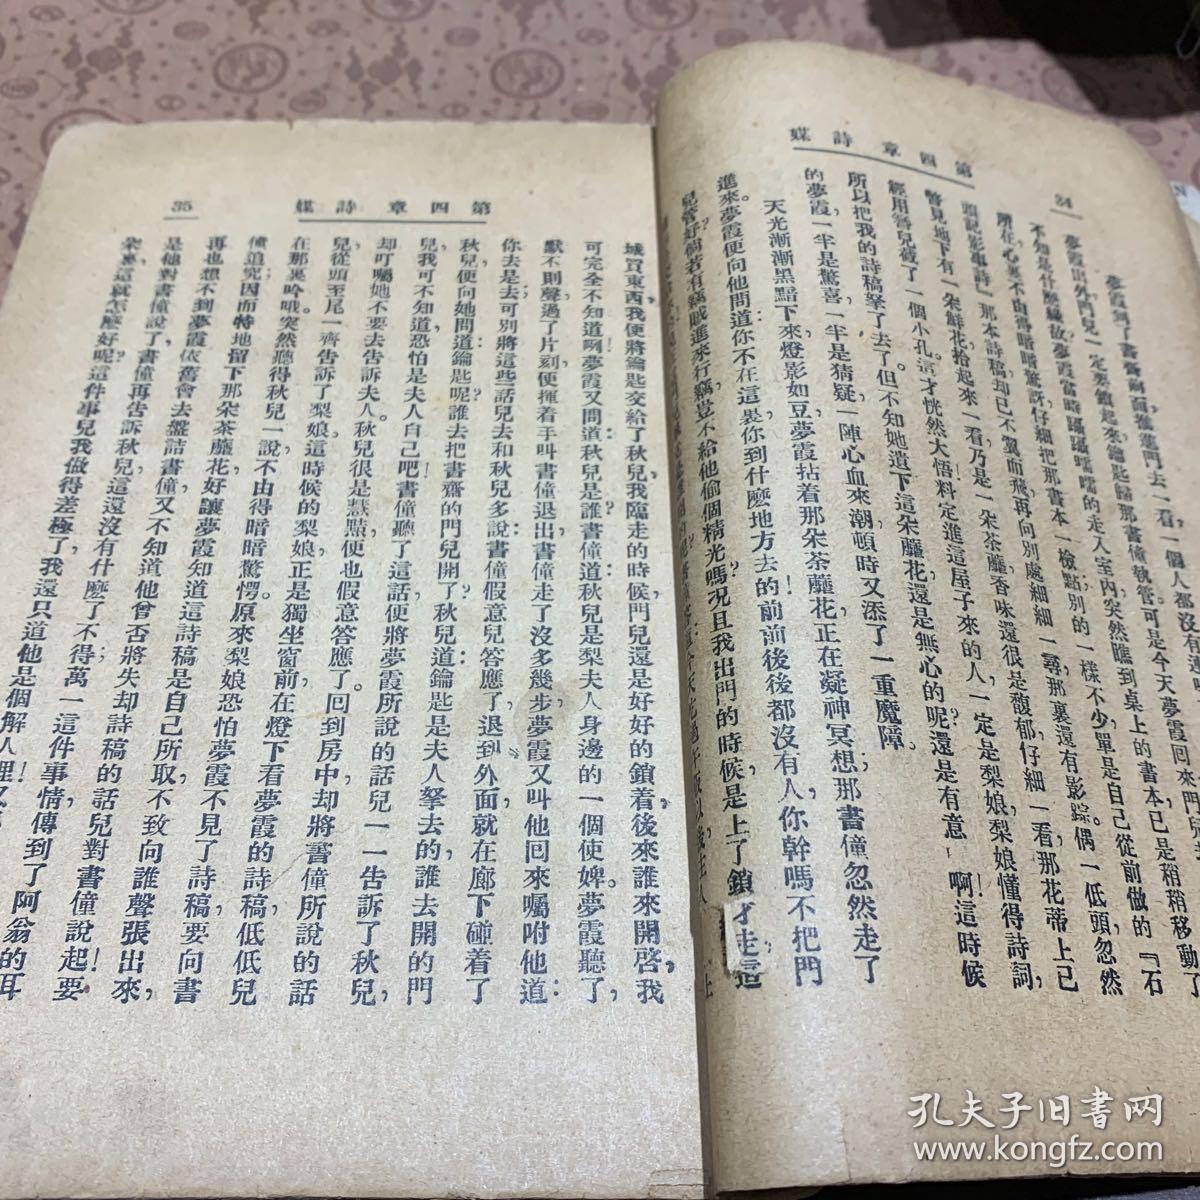 34
第四章 詩媒
不知是什麼緣故夢霞當時躡躡嚅嚅的走入室內突然瞧到桌上的書本已是稍稍移動了
所在心裏不由得暗暗驚訝仔細把那書本一檢點別的一樣不少單是自己從前做的『石
頭記影事詩』那本詩稿却已不翼而飛再向別處細細一尋那裏還有影踪。偶一低頭忽然
瞥見地下有一朶鮮花拾起來一看乃是一朶荼蘼香味還很是馥郁仔細一看那花蒂上已
經用簪兒截了一個小孔這才恍然大悟料定進這屋子來的人一定是梨娘梨娘懂得詩詞,
所以把我的詩稿拏了去了但不知她遺下這朶蘼花還是無心的呢還是有意 啊!這時候
的夢霞一半是驚喜一半是猜疑一陣心血來潮頓時又添了一重魔障。
天光漸漸黑黯下來燈影如豆夢霞拈着那朶荼蘼花正在凝神冥想那書僮忽然走了
進來夢霞便向他問道你不在這裏你到什麼地方去的前前後後都沒有人你幹嗎不把門
兒管好倘若有竊賊進來行竊豈不給他偷個精光嗎?況且我出門的時候是上了鎖才走這
35
第四章 詩媒
城買東西我便將鑰匙交給了秋兒我臨走的時候門兒還是好好的鎖着後來誰來開啓,我
可完全不知道咧夢霞又問道秋兒是誰書僮道秋兒是梨夫人身邊的一個使婢。夢霞聽了,
默不則聲過了片刻便揮着手叫書僮退出書僮走了沒多幾步夢霞又叫他回來囑咐他道:
你去是去可別將這些話兒去和秋兒多說書僮假意兒答應了退到外面就在廊下碰着了
秋兒便向她問道鑰匙呢?誰去把書齋的門兒開了秋兒道鑰匙是夫人拏去的誰去開的門
兒,我可不知道恐怕是夫人自己吧!書僮聽了這話便將夢霞所說的話兒一一告訴了秋兒,
却叮囑她不要去告訴夫人。秋兒很是慧黠便也假意答應了。回到房中却將書僮所說的話
兒從頭至尾一齊告訴了梨娘這時候的梨娘正是獨坐窗前在燈下看夢霞的詩稿低低兒
在那裏吟哦突然聽得秋兒一說不由得暗暗驚愕。原來梨娘恐怕夢霞不見了詩稿要向書
僮追究因而特地留下那朶荼蘼花好讓夢霞知道這詩稿是自己所取不致向誰聲張出來,
再也想不到夢霞依舊會去盤詰書僮又不知道他曾否將失却詩稿的話兒對書僮說起!要
是他對書僮說了書僮再告訴秋兒這還沒有什麼了不得萬一這件事情傳到了阿翁的耳
朶裏這就怎麼好呢?這件事兒我做得差極了我還只道他是個解人哩!
孔夫子旧书网
www.kongfz.com